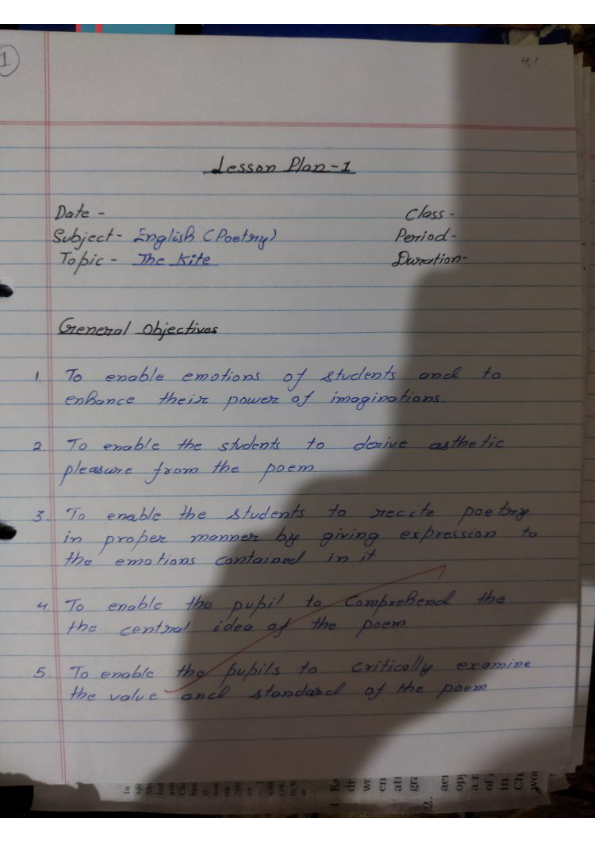 1
4,1
Lesson Plan-1
Date -
Class -
Subject- English (Poetry)
Period-
Topic - The Kite
Duration-
General Objectives
1. To enable emotions of students and to
enhance their power of imaginations
2. To enable the students to derive asthetic
pleasure from the poem
3. To enable the students to recite poetry
in proper manner by giving expression to
the emotions contained in it
4. To enable the pupil to comprehend the
the central idea of the poem
5. To enable the pupils to critically examine
the value and standard of the poem